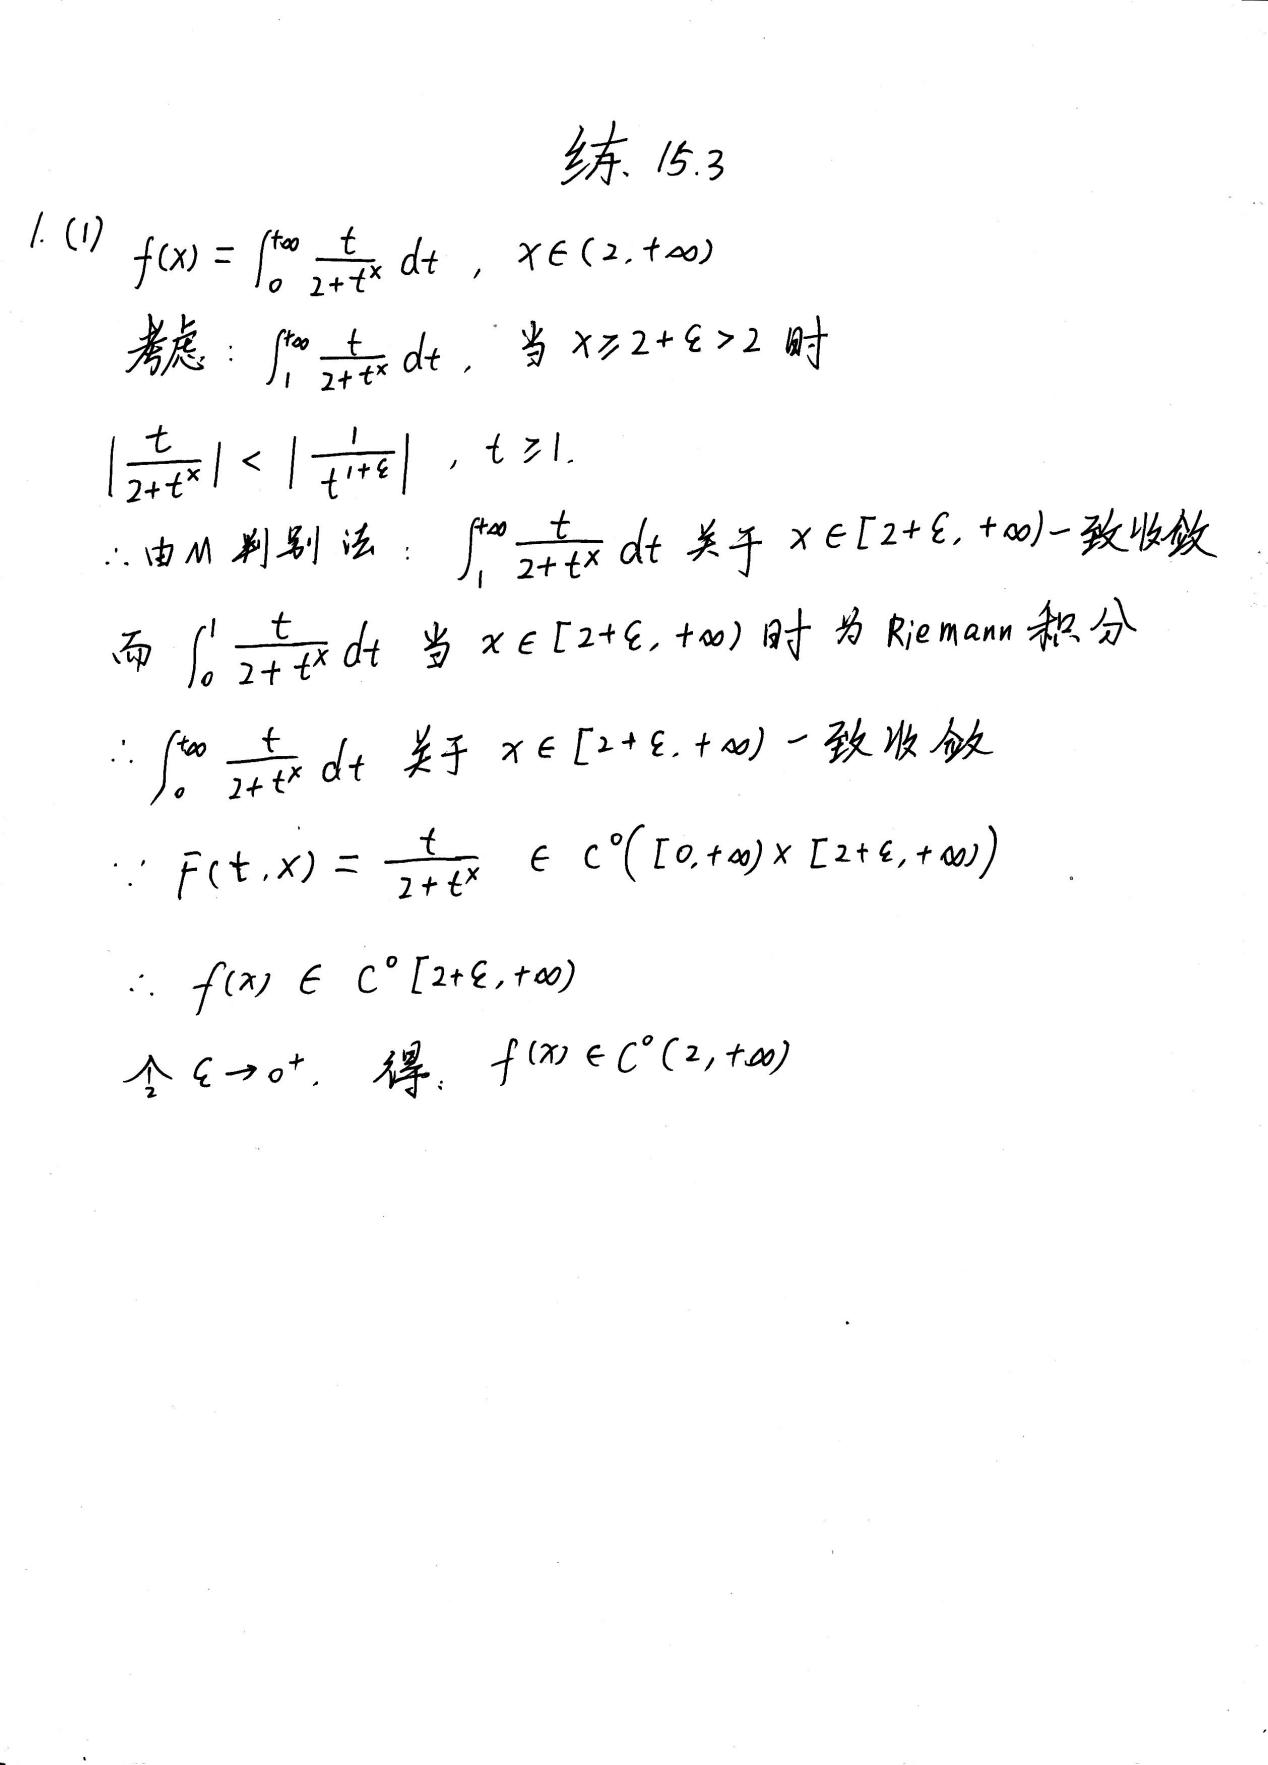 练 15.3
1. (1) f(x) = ∫₀^{+∞} t/(2+t^x) dt , x∈(2,+∞)
考虑: ∫₁^{+∞} t/(2+t^x) dt, 当 x≥2+ε>2 时
|t/(2+t^x)| < |1/t^{1+ε}| , t≥1.
∴由M判别法: ∫₁^{+∞} t/(2+t^x) dt 关于 x∈[2+ε, +∞)一致收敛
而 ∫₀^1 t/(2+t^x) dt 当 x∈[2+ε, +∞) 时 为 Riemann 积分
∴ ∫₀^{+∞} t/(2+t^x) dt 关于 x∈[2+ε, +∞) 一致收敛
∵ F(t,x) = t/(2+t^x) ∈ C⁰([0,+∞)×[2+ε,+∞))
∴ f(x) ∈ C⁰[2+ε,+∞)
令 ε→0⁺, 得: f(x)∈C⁰(2,+∞)